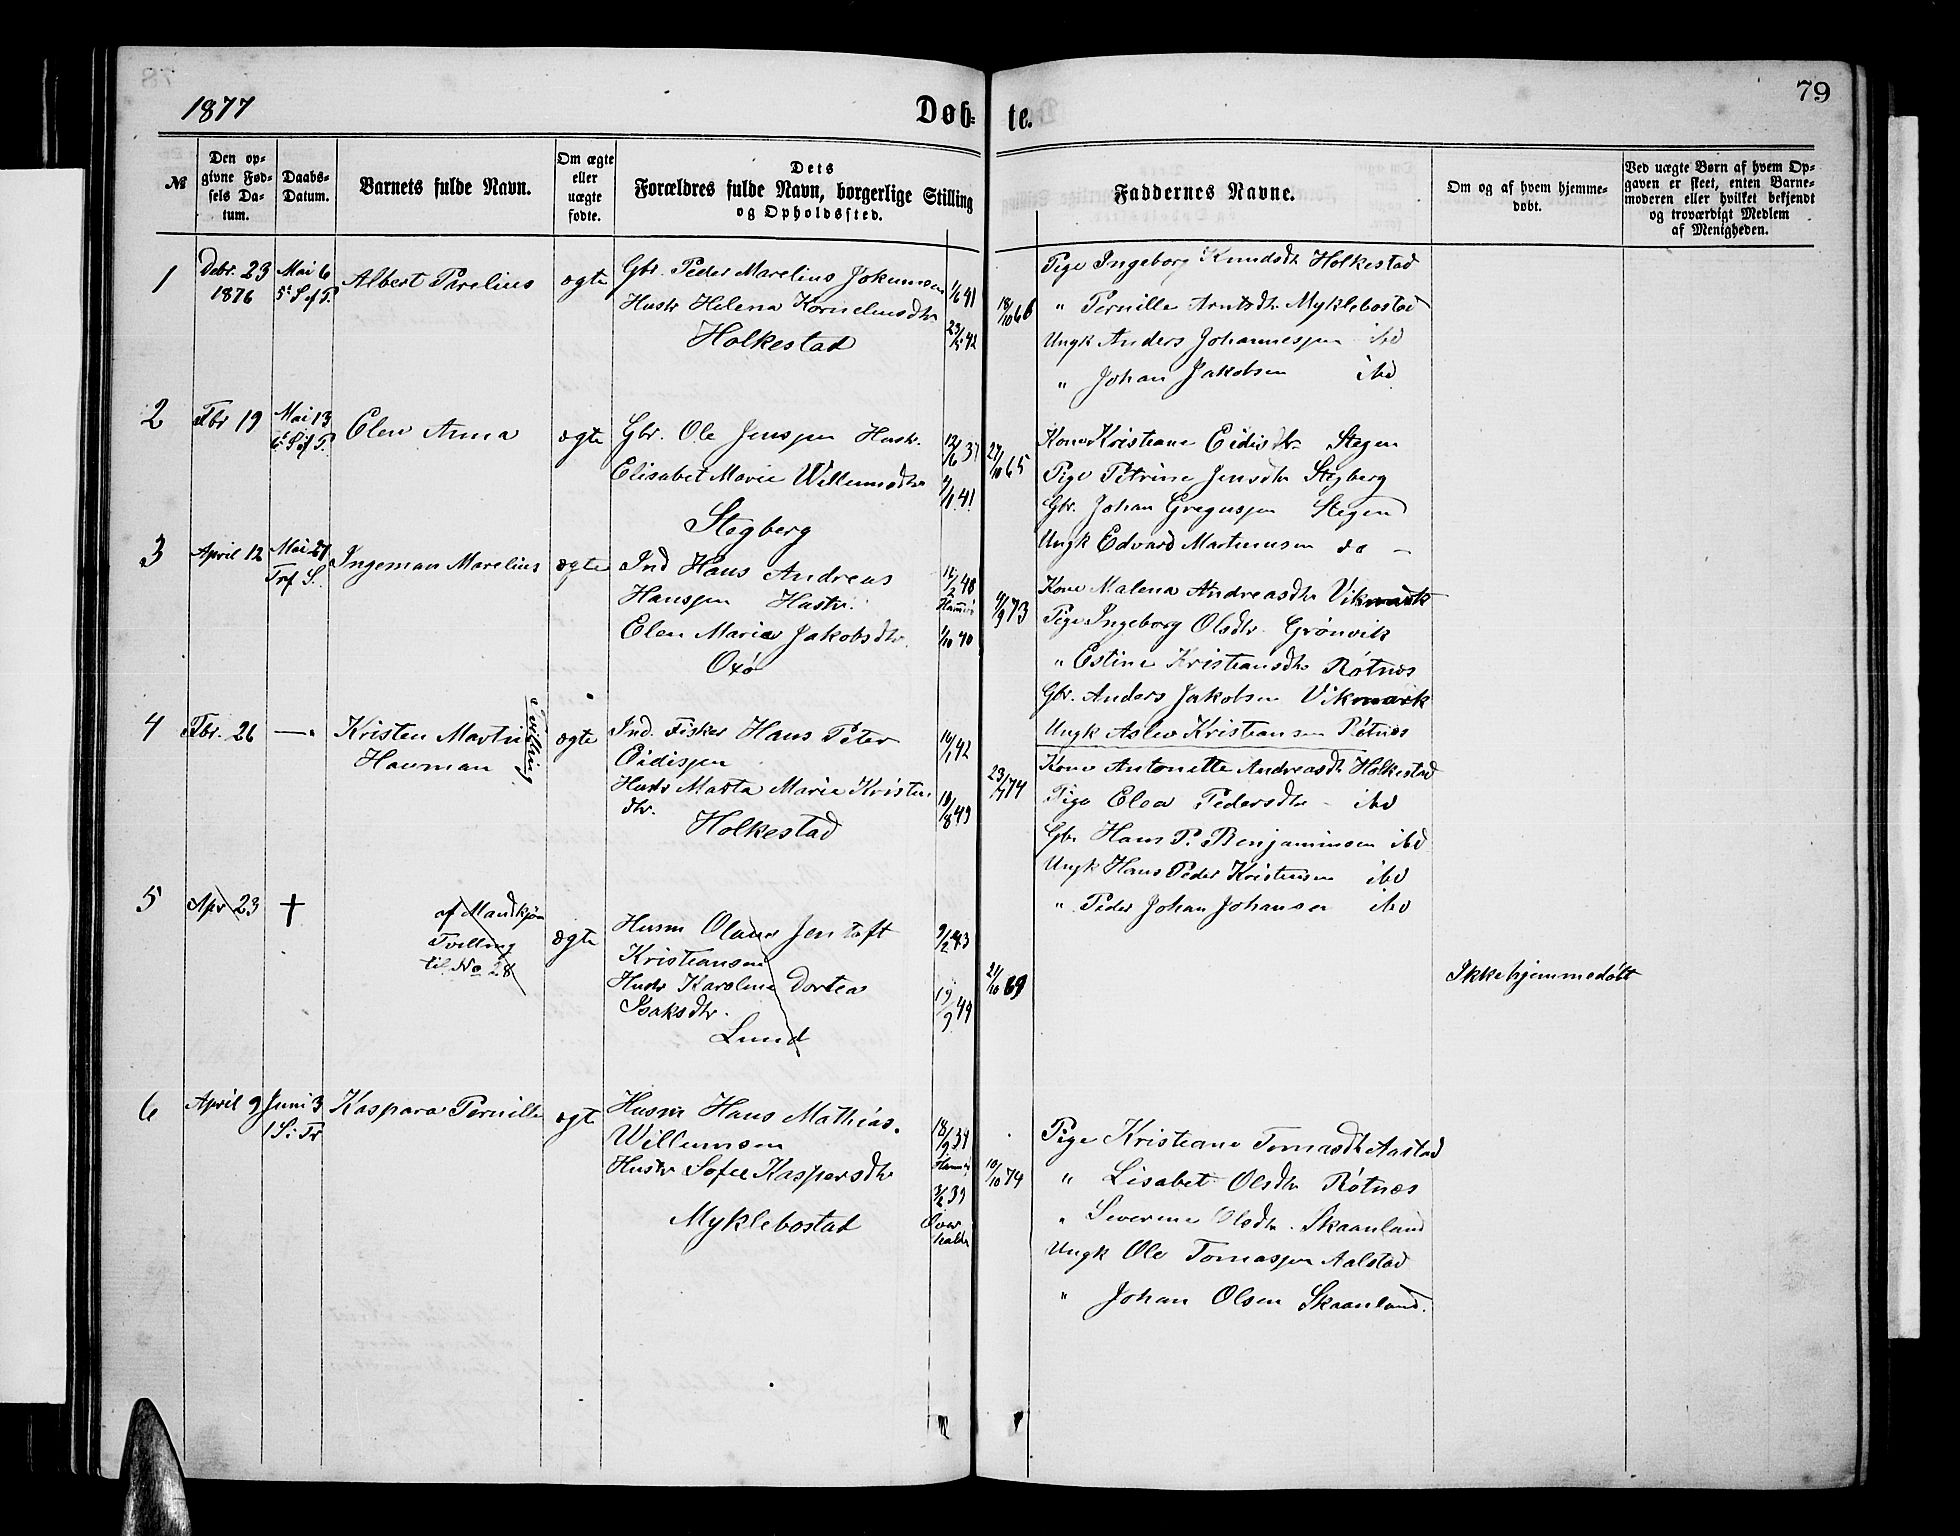 79
1877
Døb-
te.
№
Den op-
givne Fød-
sels Da-
tum.
Daabs-
Datum.
Barnets fulde Navn.
Om ægte
eller
uægte
fødte.
Dets
Forældres fulde Navn, borgerlige Stilling
og Opholdssted.
Faddernes Navne.
Om og af hvem hjemme-
døbt.
Ved uægte Børn af hvem Op-
gaven er skeet, enten Barne-
moderen eller hvilket bekjendt
og troværdigt Medlem
af Menigheden.
1
Debr. 23
1876
Mai 6
5 S ef P.
Albert Parelius
ogte
Gbr. Peder Marelius Jokumsen
Hustr Helena Kornelinsdtr
Holkestad
1/6 41
23/5 42
18/10 66
Pige Ingeborg Knudsdtr Holkestad
" Pernille Arntsdtr Myklebostad
Ungk Anders Johannesen ibd
" Johan Jakobsen ibd
2
Fbr 19
Mai 13
6 S ef P.
Elen Anna
ægte
Gbr. Ole Jenssen Hustr.
Elisabet Marie Willumsdtr
Stegberg
12/6 37
9/11 41
27/10 65
Kone Kristiane Eidisdtr Stegen
Pige Petrine Jensdtr Stegberg
Gbr. Johan Gregussen Stegen
Ungk Edvard Martinusen do -
3
April 12
Mai 27
Trf S.
Ingeman Marelius
ægte
Ind Hans Andreas
Hanssen Hustr.
Elen Maria Jakobsdtr.
Oxø
12/2 48
Hamrø
1/10 40
9/9 73
Kone Malena Andreasdtr Vikmark
Pige Ingeborg Olsdtr. Grønvik
" Estine Kristiansdtr Røtnes
Gbr. Anders Jakobsen Vikmark
Ungk Aslev Kristiansen Røtnes
4
Fbr. 26
—.
Kristen Martin
Havman
Tvilling
ægte
Ind. Fisker Hans Peter
Eidissen
Hustr Marta Maria Kristen
dtr.
Holkestad
16/1 42
18/8 49
23/7 74
Kone Antonette Andreasdtr Holkestad
Pige Elea Pedersdtr - ibd
Gbr Hans P. Benjaminsen ibd
Ungk Hans Peder Kristensen ibd
" Peder Johan Johansen ibd
5
Apr 23
+
af Mandkjøn
Tvilling
til No 28
ægte
Husm Olaus Jentoft
Kristiansen
Hustr Karoline Dortea
Isaksdtr.
Lund
9/2 43
19/9 49
21/10 69
Ikke hjemmedøbt
6
April 9
Juni 3
1 S: Tr
Kaspara Pernille
ogte
Husm Hans Mathias
Willumsen
Hustr Sofie Kaspersdtr
Myklebostad
18/9 34
3/2 39
10/10 74
Pige Kristiane Tomasdtr Aastad
" Lisabet Olsdtr Røtnes
" Severine Olsdtr. Skaanland
Ungk Ole Tomassen Aalstad
" Johan Olsen Skaanland.